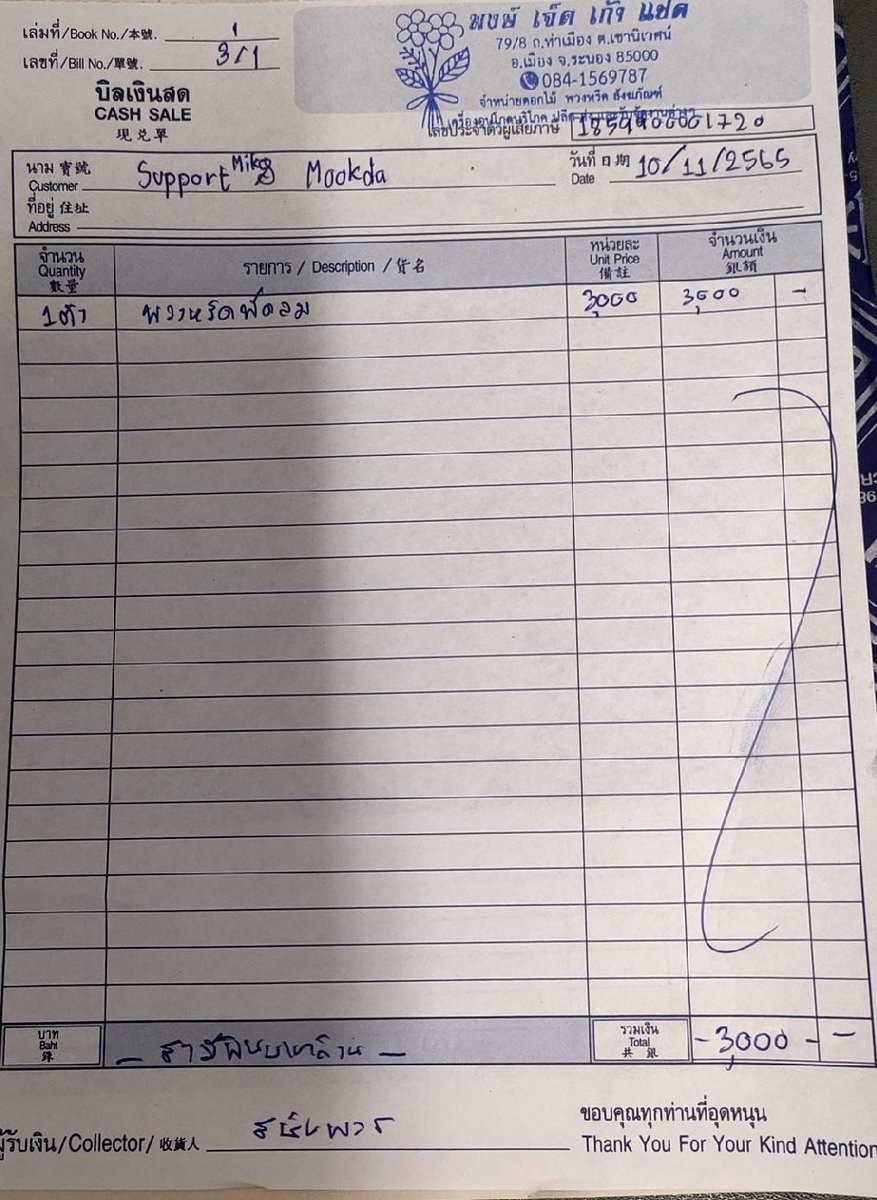 เล่มที่/Book No./本號. 1
เลขที่/Bill No./單號. 3/1
บิลเงินสด
CASH SALE
現兌單
พงษ์ เจ็ด เก้า แปด
79/8 ถ.ท่าเมือง ต.เขานิเวศน์
อ.เมือง จ.ระนอง 85000
084-1569787
จำหน่ายดอกไม้ พวงหรีด สังฆภัณฑ์
เลขประจำตัวผู้เสียภาษี 1859900001720
นาม 寶號 Customer Support Mikey Mookda
วันที่ 日期 Date 10/11/2565
ที่อยู่ 住址
Address
จำนวน Quantity 數量
รายการ / Description / 貨名
หน่วยละ Unit Price 備註
จำนวนเงิน Amount 銀額
1ตัว พวงหรีดพัดลม 3,000 3,000 -
บาท Baht 銖 - สามพันบาทถ้วน -
รวมเงิน Total 共銀 - 3,000 - -
ขอบคุณทุกท่านที่อุดหนุน
ผู้รับเงิน/Collector/收貨人
Thank You For Your Kind Attention